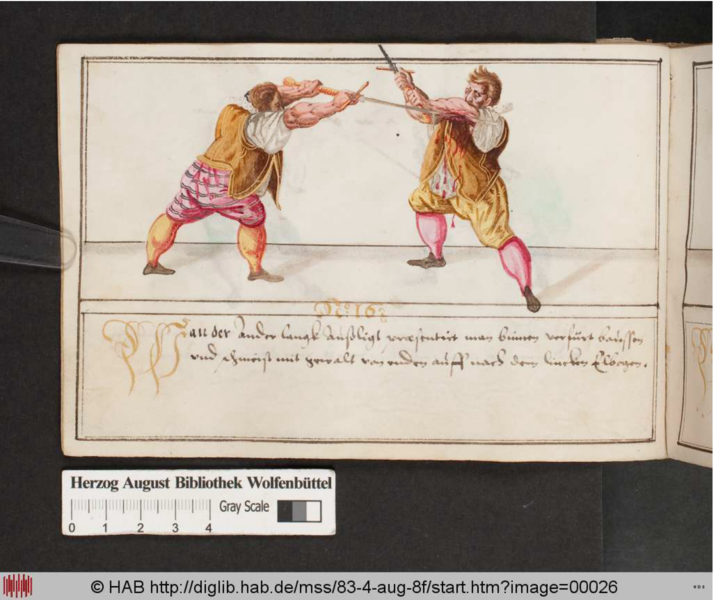 No: 16.
Wan der Ander langk außligt præsentirt man binnen verfürt baussen
vnd schmeist mit gewalt von vnden auff nach dem lincken Elbogen.
Herzog August Bibliothek Wolfenbüttel
Gray Scale
0 1 2 3 4
© HAB http://diglib.hab.de/mss/83-4-aug-8f/start.htm?image=00026